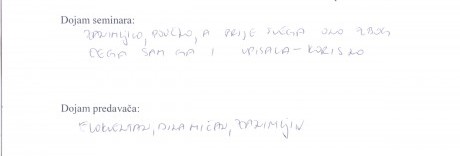 Dojam seminara:
ZANIMLJIVO, POUČNO, A PRIJE SVEGA ONO ZBOG
ČEGA SAM GA I UPISALA - KORISNO
Dojam predavača:
ELOKVENTAN, DINAMIČAN, ZANIMLJIV